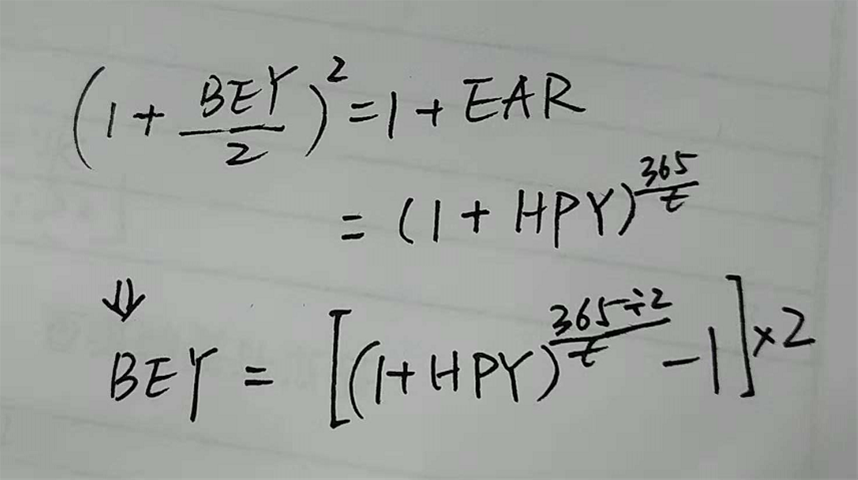 (1 + BEY/2)² = 1 + EAR
= (1 + HPY)^(365/t)
⇓
BEY = [(1+HPY)^(365÷2/t) - 1]×2